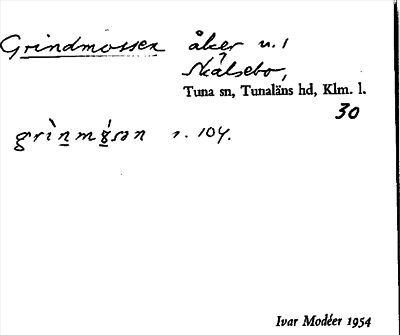 Grindmossen åker n. 1
Skälsebo,
Tuna sn, Tunaläns hd, Klm. l.
30
104.
Ivar Modéer 1954